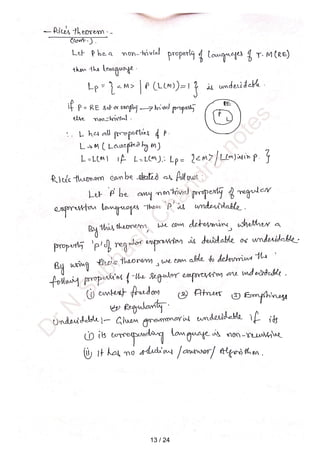 — Rice's Theorem -
(Cont..)
Let P be a non-trivial property of languages of T.M (RE)
then the language.
Lp = { <M> | P(L(M)) = 1 } is undecidable.
if P = RE set or empty —> trivial property
else non-trivial.
RE
P
L
∴ L has all properties of P.
L → M ( Lau accepted by M)
L = L(M) if L = L(M); Lp = { <M> / L(M) is in P. }
Rice's theorem can be stated as follows
Let 'P' be any non-trivial property of regular
expression languages then 'P' is undecidable.
By this theorem, we can determine, whether a
property 'P' of regular expression is decidable or undecidable.
By using Rice's theorem, we can able to determine the
following properties of the regular expression are undecidable.
(1) context freedom (2) Fitness (3) Emptiness
(4) Regularity.
Undecidable :- Given grammar is undecidable if
(i) its corresponding language is non-recursive
(ii) it has no solution / answer / Algorithm.
13 / 24